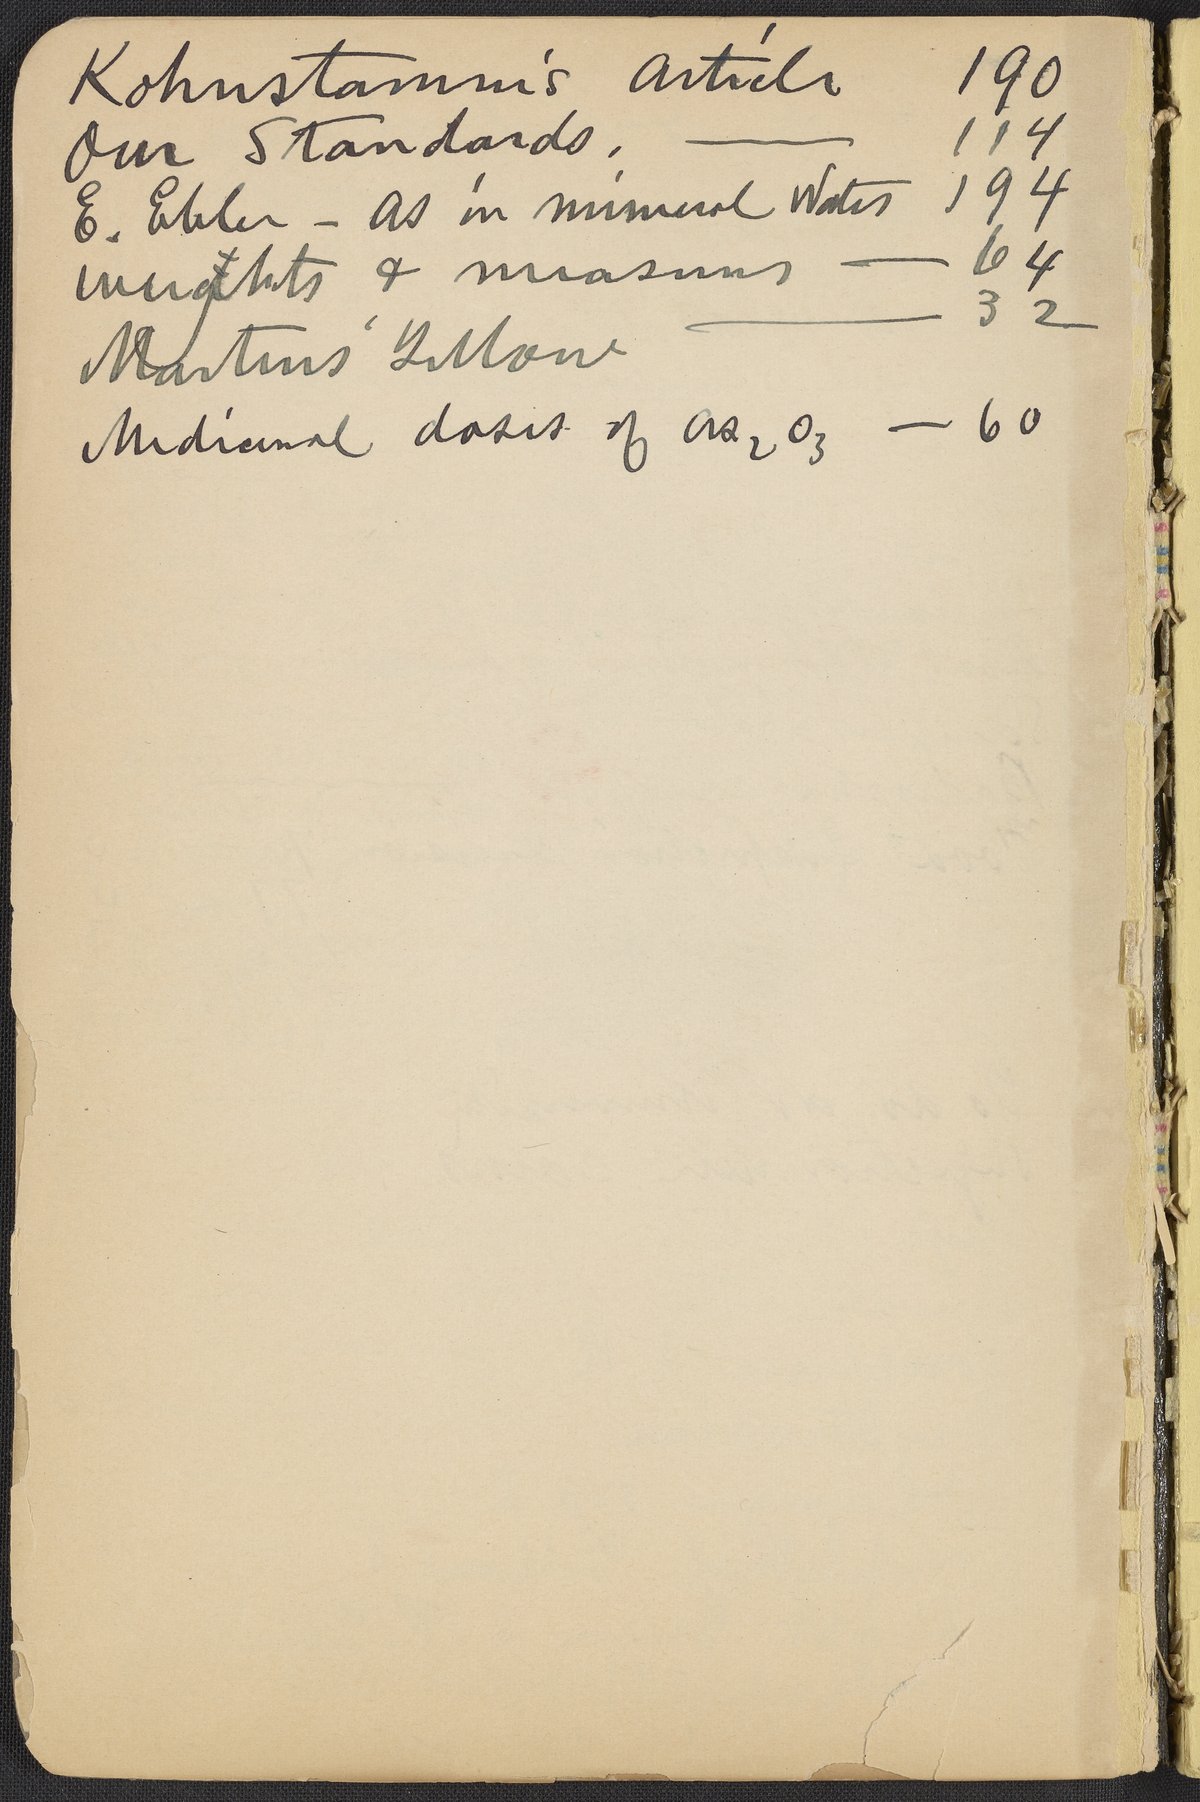 Kohnstamm's Article 190
Our Standards. — 114
E. Ebler - As in mineral Water 194
weights & measures — 64
Martius' Yellow — 32
Medicinal doses of As₂O₃ — 60